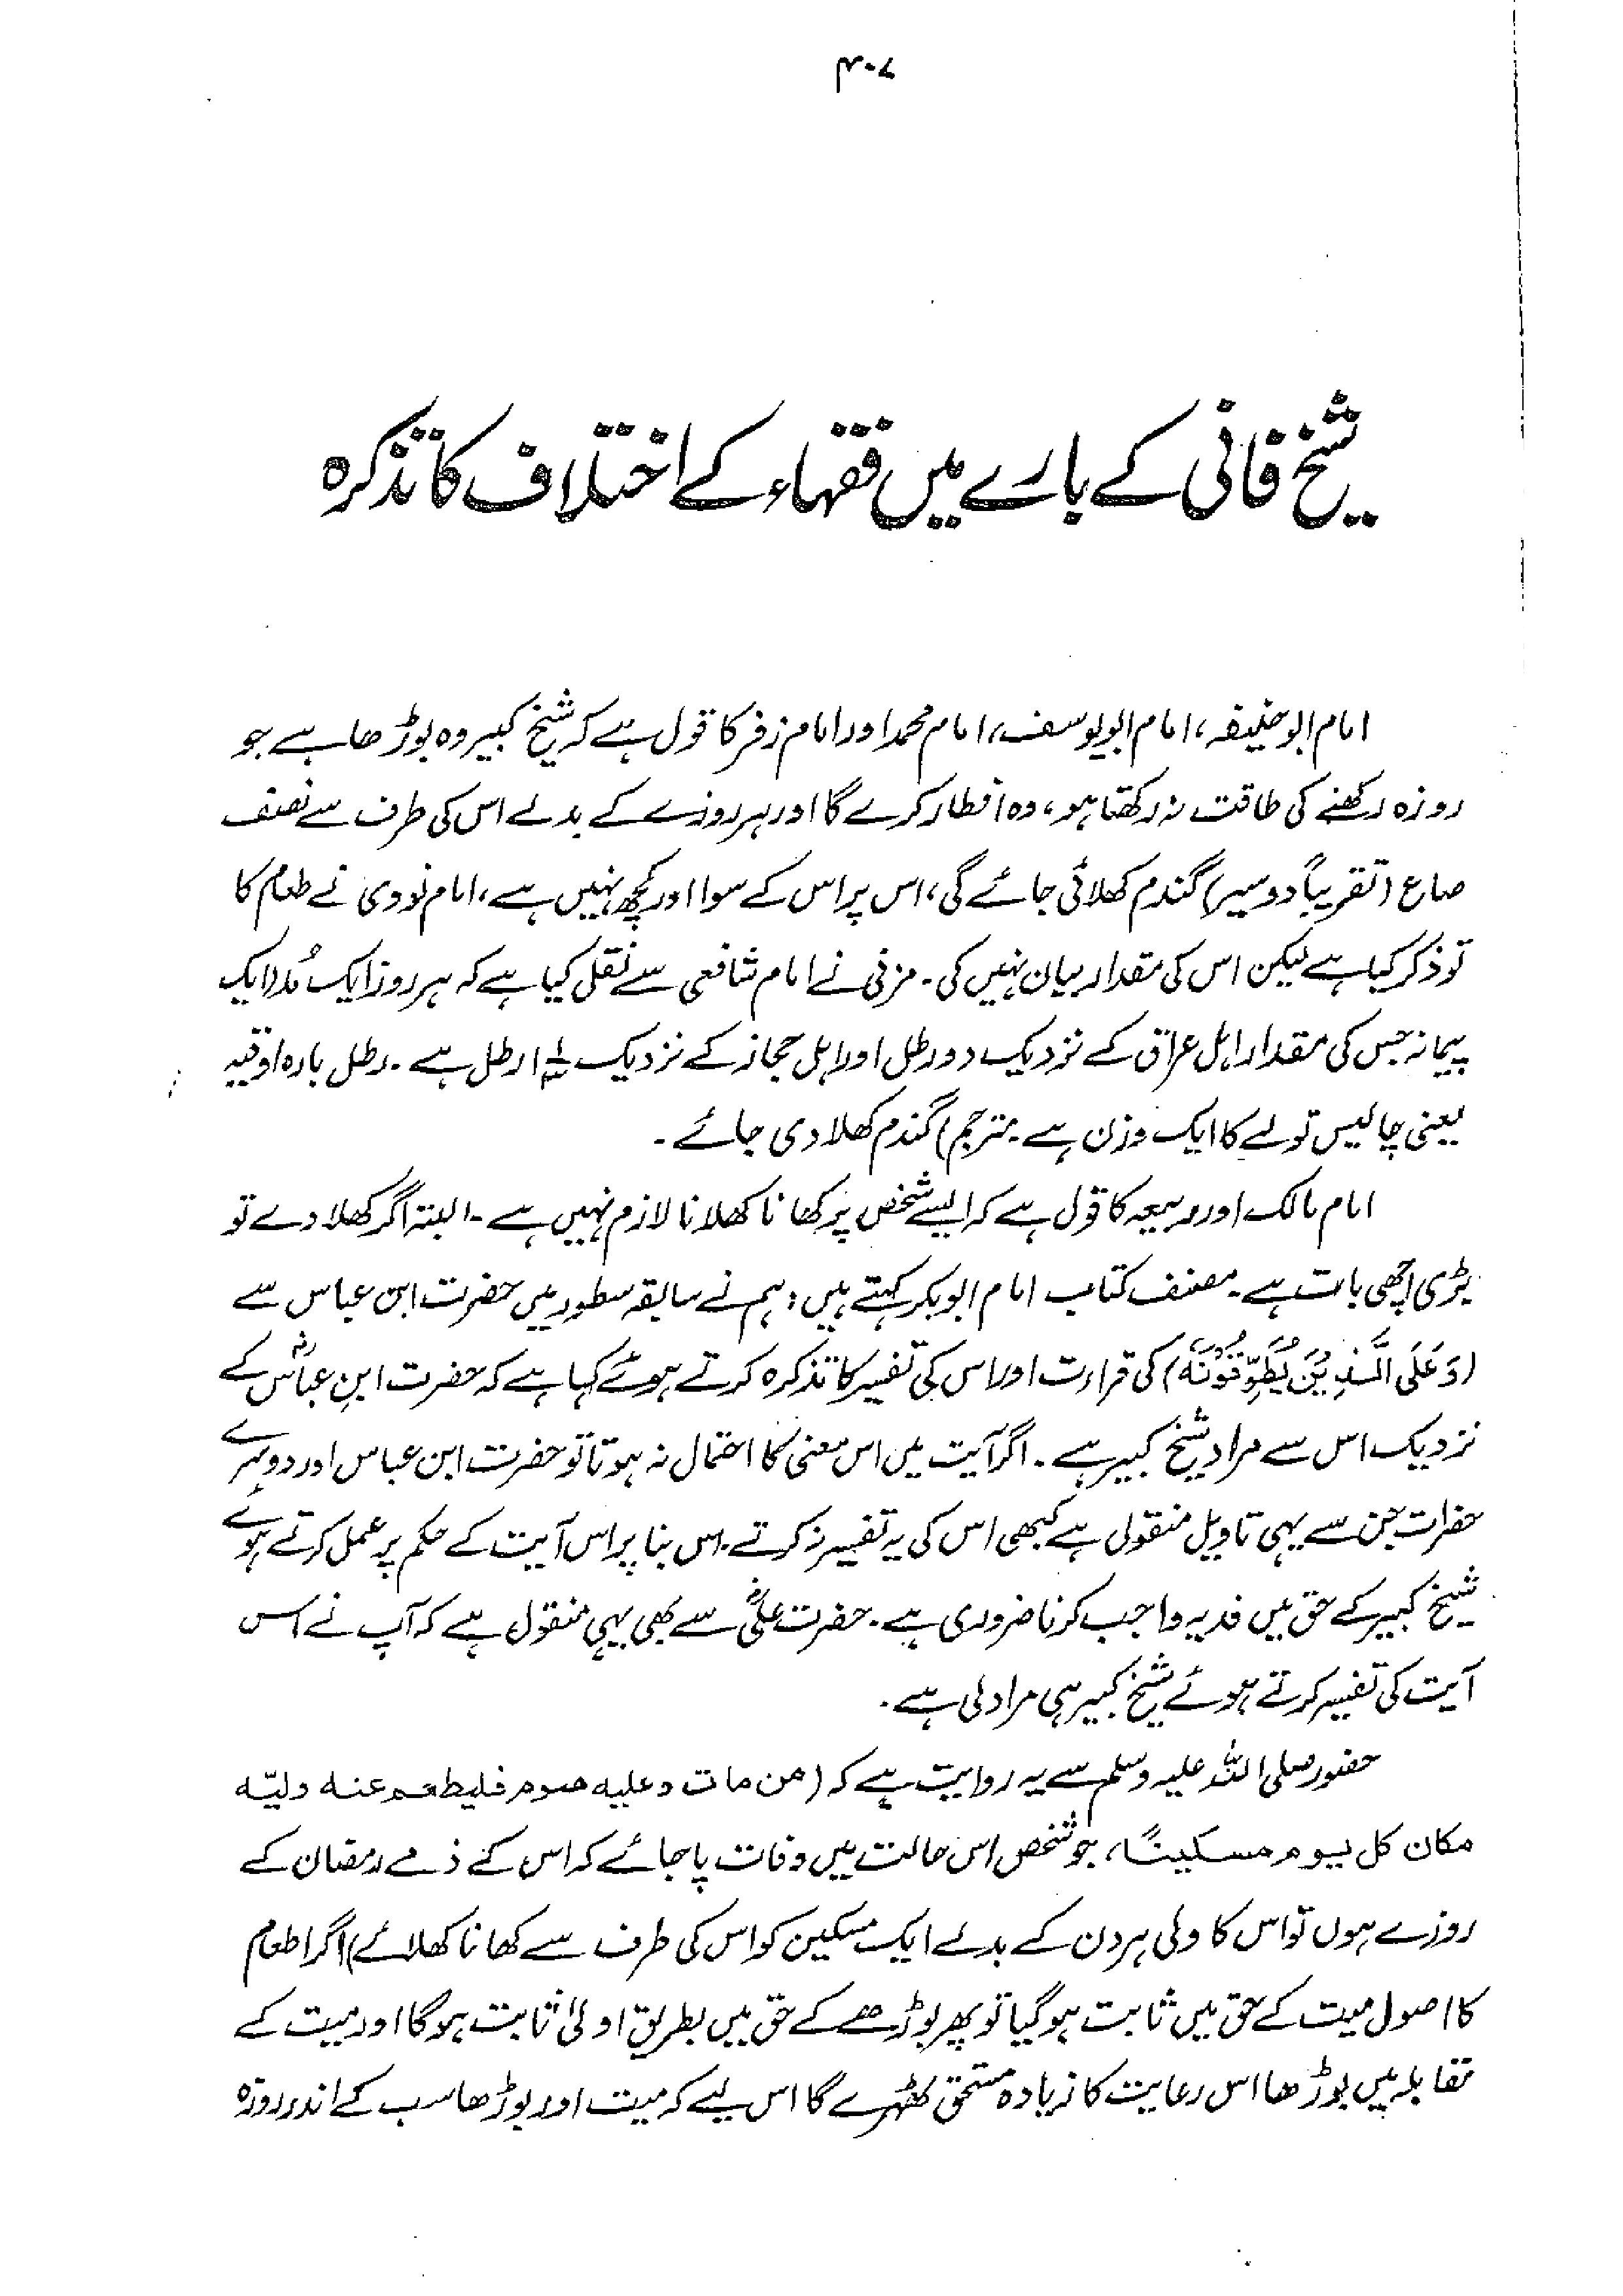 ۴۰۷
شیخ فانی کے بارے میں فقہاء کے اختلاف کا تذکرہ
امام ابوحنیفہ، امام ابویوسف، امام محمد اور امام زفر کا قول ہے کہ شیخ کبیر وہ بوڑھا ہے جو
روزہ رکھنے کی طاقت نہ رکھتا ہو، وہ افطار کرے گا اور ہر روزے کے بدلے اس کی طرف سے نصف
صاع (تقریباً دو سیر) گندم کھلائی جائے گی، اس پر اس کے سوا اور کچھ نہیں ہے، امام نووی نے طعام کا
تو ذکر کیا ہے لیکن اس کی مقدار بیان نہیں کی۔ مزنی نے امام شافعی سے نقل کیا ہے کہ ہر روز ایک مُد (ایک
پیمانہ جس کی مقدار اہل عراق کے نزدیک دو رطل اور اہل حجاز کے نزدیک ۱ ۱/۳ رطل ہے۔ رطل بارہ اوقیہ
یعنی چالیس تولے کا ایک وزن ہے۔ مترجم) گندم کھلا دی جائے۔
امام مالک اور ربیعہ کا قول ہے کہ ایسے شخص پر کھانا کھلانا لازم نہیں ہے۔ البتہ اگر کھلا دے تو
بڑی اچھی بات ہے۔ مصنف کتاب امام ابوبکر کہتے ہیں: ہم نے سابقہ سطور میں حضرت ابن عباس سے
(وَعَلَی الَّذِیْنَ یُطَوَّقُوْنَهُ) کی قراءت اور اس کی تفسیر کا تذکرہ کرتے ہوئے کہا ہے کہ حضرت ابنِ عباسؓ کے
نزدیک اس سے مراد شیخ کبیر ہے۔ اگر آیت میں اس معنی کا احتمال نہ ہوتا تو حضرت ابن عباس اور دوسرے
حضرات جن سے یہی تاویل منقول ہے کبھی اس کی یہ تفسیر نہ کرتے۔ اس بنا پر اس آیت کے حکم پر عمل کرتے ہوئے
شیخ کبیر کے حق میں فدیہ واجب کرنا ضروری ہے۔ حضرت علیؓ سے بھی یہی منقول ہے کہ آپ نے اس
آیت کی تفسیر کرتے ہوئے شیخ کبیر ہی مراد لی ہے۔
حضور صلی اللہ علیہ وسلم سے یہ روایت ہے کہ (من مات وعلیه صوم فلیطعم عنه ولیّه
مکان کل یوم مسکینًا، جو شخص اس حالت میں وفات پا جائے کہ اس کے ذمے رمضان کے
روزے ہوں تو اس کا ولی ہر دن کے بدلے ایک مسکین کو اس کی طرف سے کھانا کھلائے) اگر اطعام
کا اصول میت کے حق میں ثابت ہوگیا تو پھر بوڑھے کے حق میں بطریق اولیٰ ثابت ہوگا اور میت کے
مقابلہ میں بوڑھا اس رعایت کا زیادہ مستحق ٹھہرے گا اس لیے کہ میت اور بوڑھا سب کے اندر روزہ